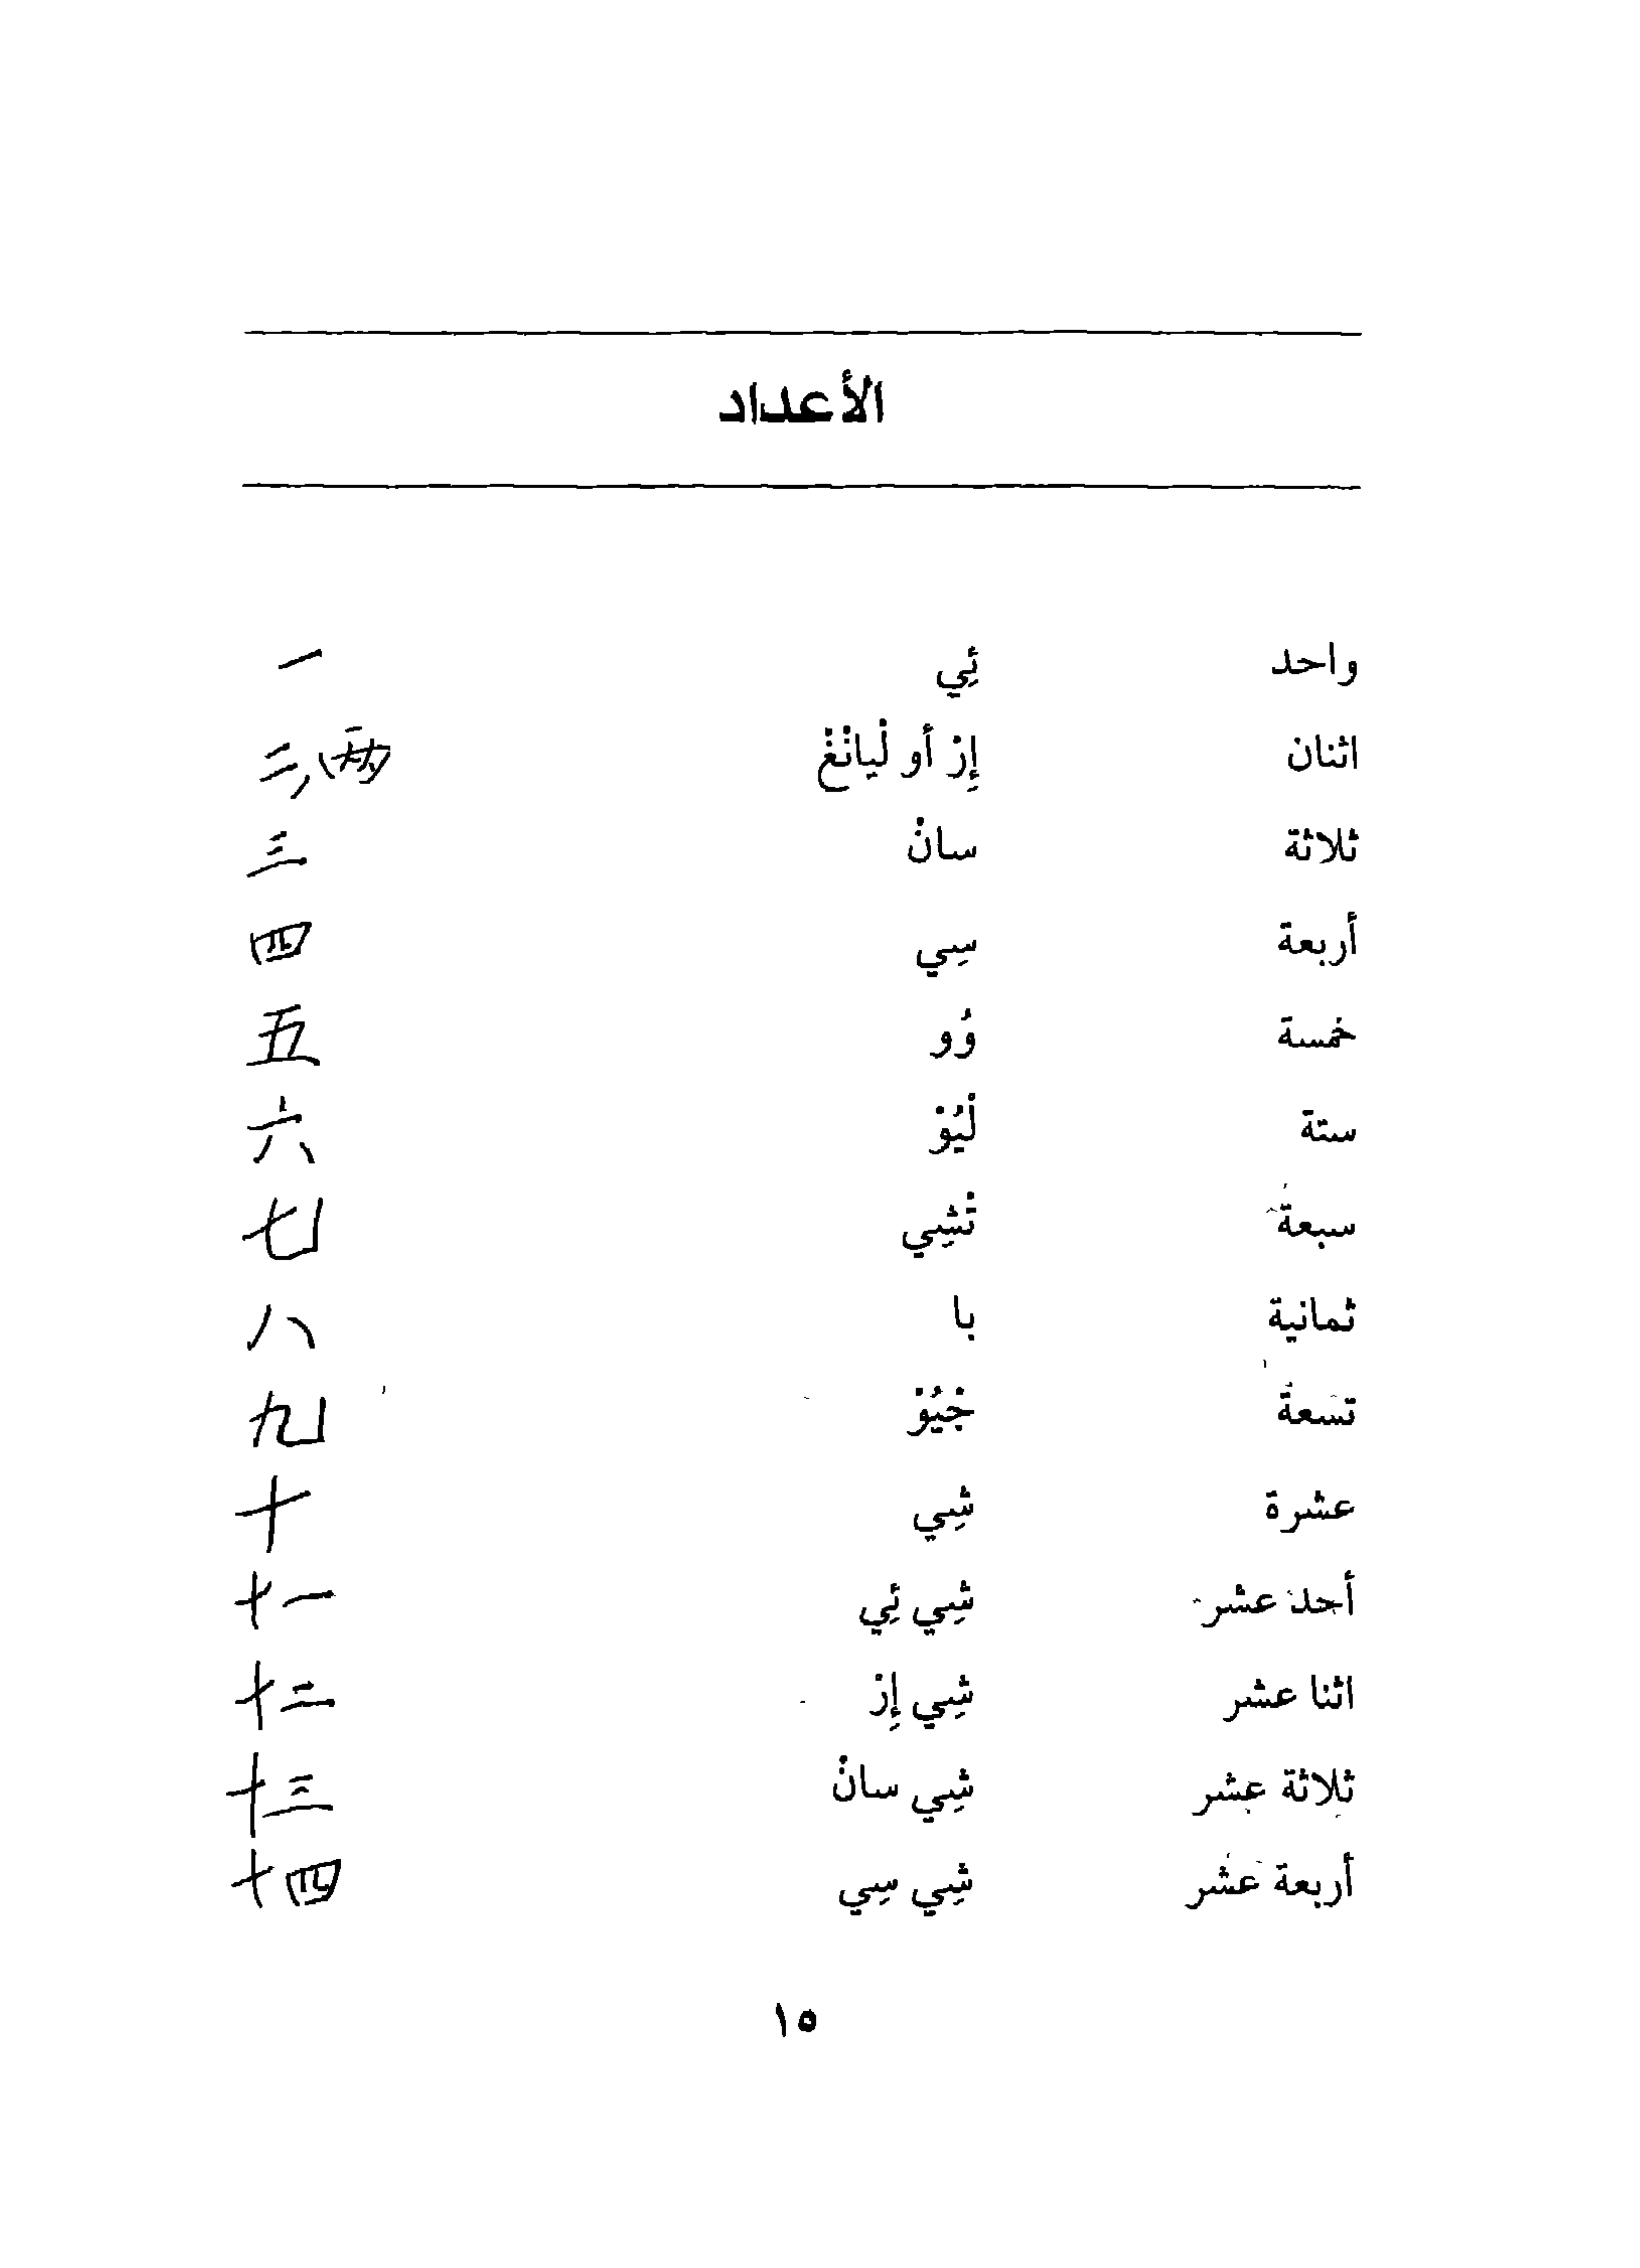 الأعداد
واحد ئِي 一
اثنان إِرْ أو لْيانْغْ 二,两
ثلاثة سانْ 三
أربعة سِي 四
خمسة وُو 五
ستة لْيُوْ 六
سبعة تْشِي 七
ثمانية با 八
تسعة جْيُوْ 九
عشرة شِي 十
أحد عشر شِي ئِي 十一
اثنا عشر شِي إِرْ 十二
ثلاثة عشر شِي سانْ 十三
أربعة عشر شِي سِي 十四
١٥